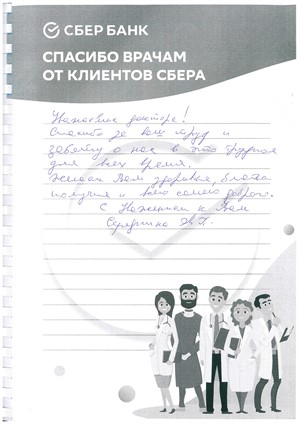 СБЕР БАНК
СПАСИБО ВРАЧАМ
ОТ КЛИЕНТОВ СБЕРА
Уважаемые доктора!
Спасибо за ваш труд и
заботу о нас в это трудное
для всех время.
Желаем Вам здоровья, благо
получия и всего самого доброго.
С Уважением к Вам